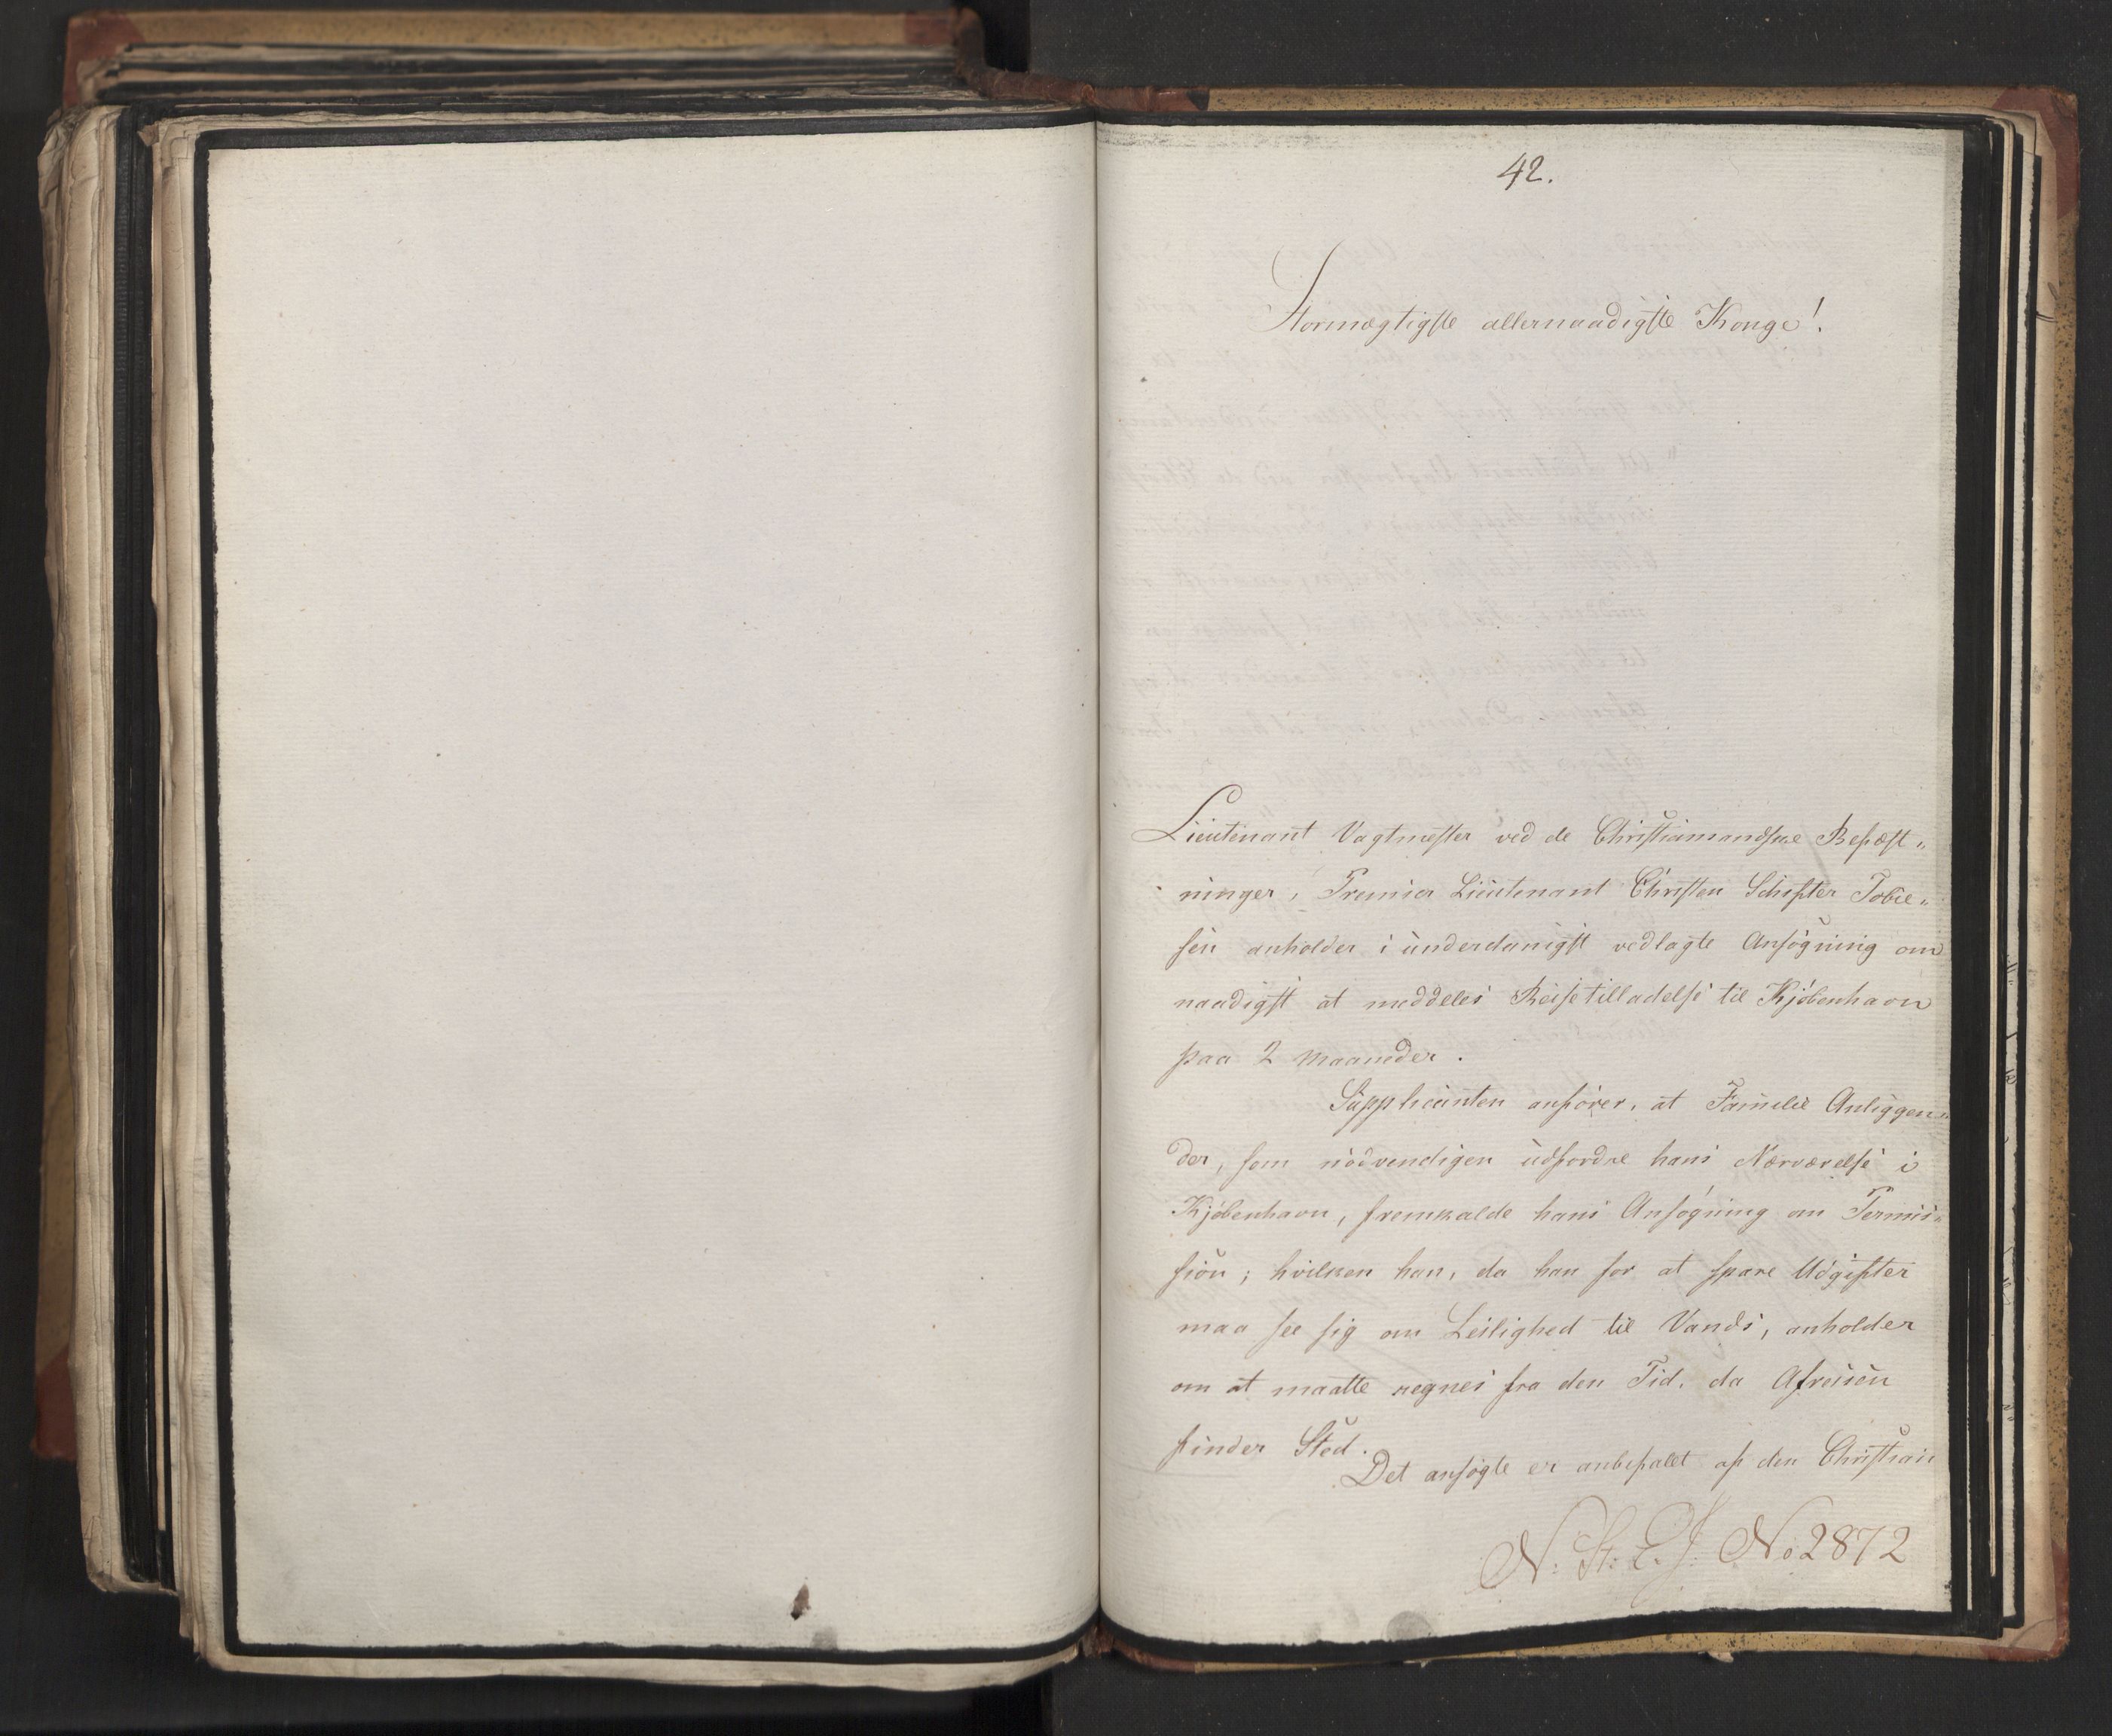 42.
Stormægtigste allernaadigste Konge!
Lieutenant Vagtmester ved de Christiansandske Befæst„
ninger, Premier Lieutenant Christen Schifter Tobie„
sen anholder i underdanigst vedlagte Ansøgning om
naadigst at meddeles Reisetilladelse til Kjøbenhavn
paa 2 Maaneder.
Supplicanten anfører, at Familie Anliggen„
der, som nødvendigen udfordre hans Nærværelse i
Kjøbenhavn, fremkalde hans Ansøgning om Permis„
sion; hvilken han, da han for at spare Udgifter
maa see sig om Leilighed til Vands, anholder
om at maatte regnes fra den Tid, da Afreisen
finder Sted.
Det ansøgte er anbefalet af den Christian
N: St: E. J. No 2872